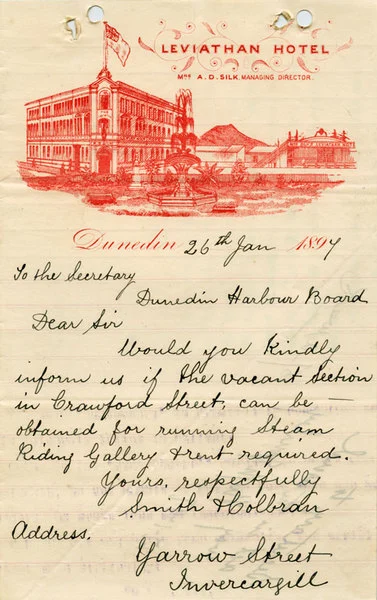 LEVIATHAN HOTEL
Mrs A. D. SILK, MANAGING DIRECTOR.
Dunedin 26th Jan 1897
To the Secretary
Dunedin Harbour Board
Dear Sir
Would you Kindly
inform us if the vacant Section
in Crawford Street, can be —
obtained for running Steam
Riding Gallery & rent required.
Yours, respectfully
Smith & Holbran
Address.
Yarrow Street
Invercargill